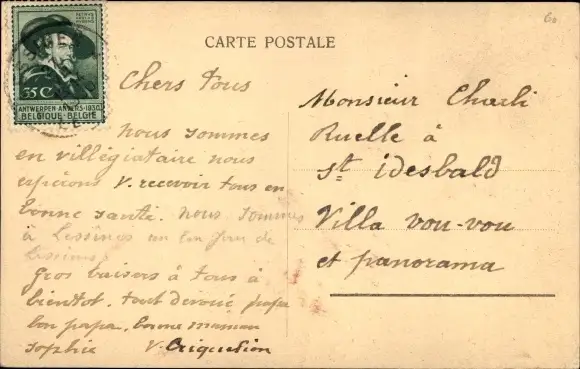 CARTE POSTALE
PETRVS
PAVLVS
RVBENS
35C
ANTWERPEN-ANVERS-1930
BELGIQUE-BELGIE
Chers tous
nous sommes
en villégiataire nous
espérons V. recevoir tous en
bonne santé. nous sommes
à Lessines
gros baisers à tous à
bientot. tout dévoué papa
bon papa. bonne maman
sophie V.
Monsieur Charli
Ruelle à
St idesbald
Villa vou-vou
et panorama